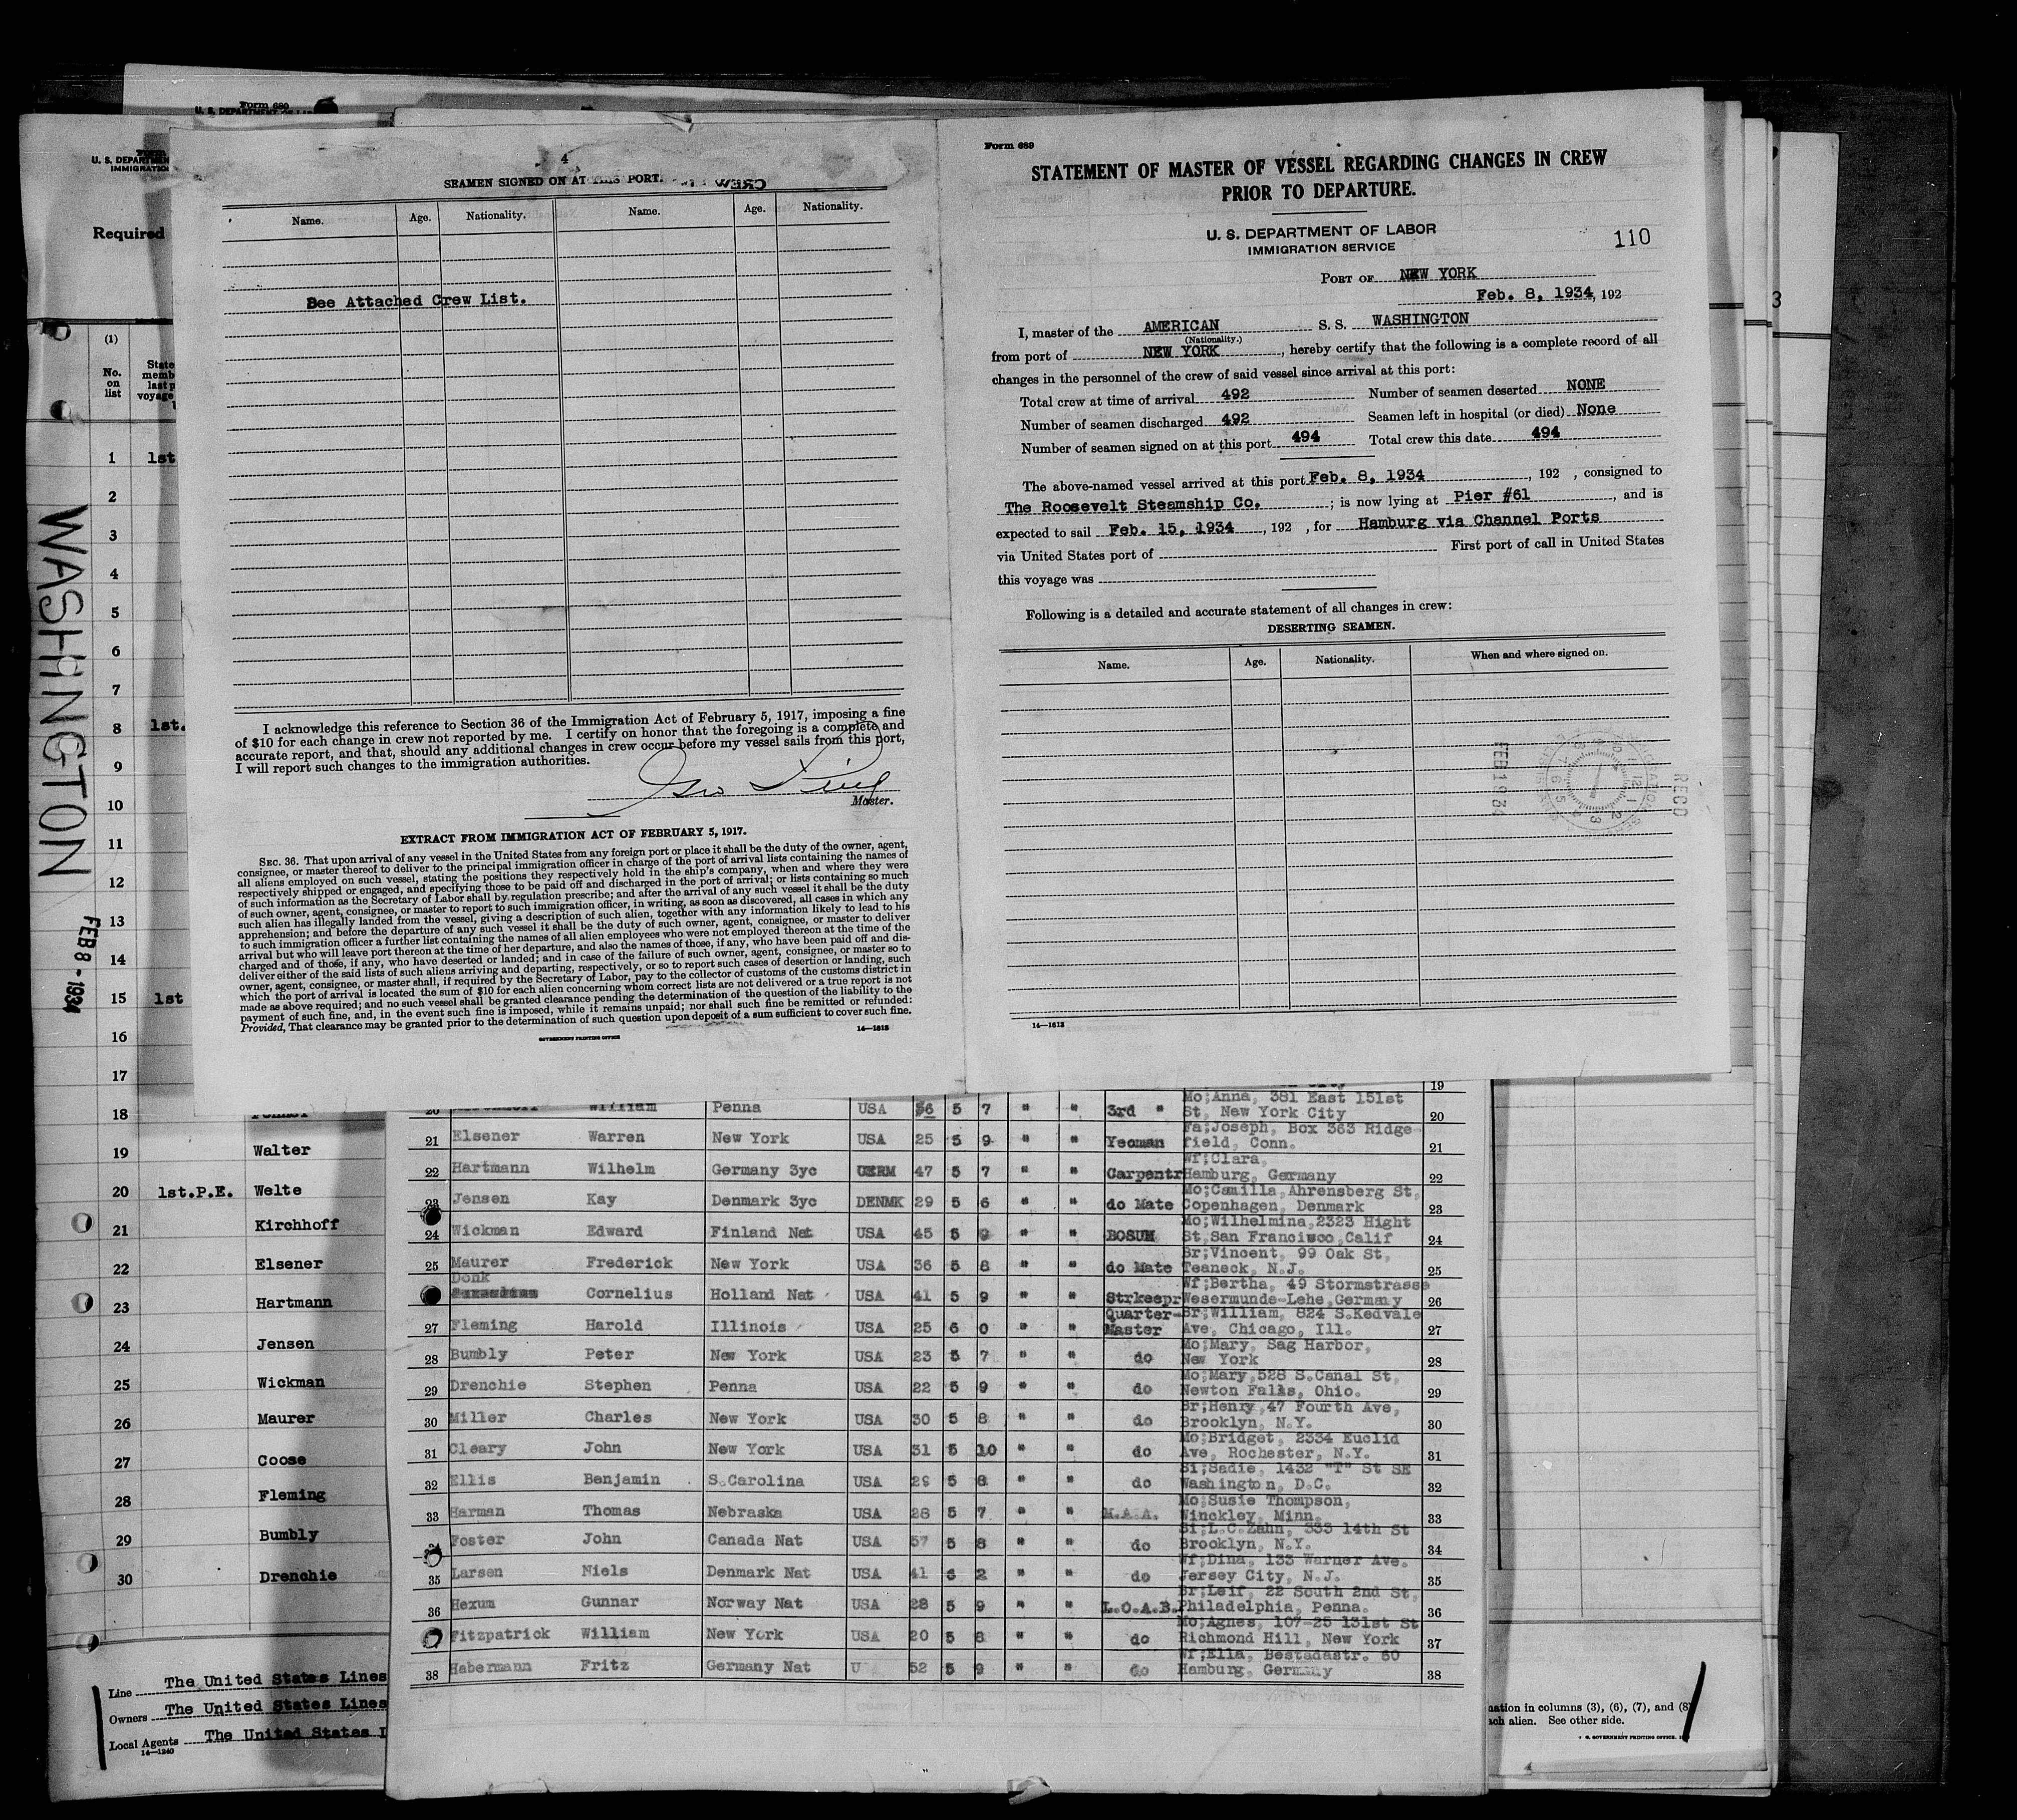 4
SEAMEN SIGNED ON AT THIS PORT.
Name. Age. Nationality. Name. Age. Nationality.
See Attached Crew List.
I acknowledge this reference to Section 36 of the Immigration Act of February 5, 1917, imposing a fine
of $10 for each change in crew not reported by me. I certify on honor that the foregoing is a complete and
accurate report, and that, should any additional changes in crew occur before my vessel sails from this port,
I will report such changes to the immigration authorities.
Master.
EXTRACT FROM IMMIGRATION ACT OF FEBRUARY 5, 1917.
SEC. 36. That upon arrival of any vessel in the United States from any foreign port or place it shall be the duty of the owner, agent,
consignee, or master thereof to deliver to the principal immigration officer in charge of the port of arrival lists containing the names of
all aliens employed on such vessel, stating the positions they respectively hold in the ship's company, when and where they were
respectively shipped or engaged, and specifying those to be paid off and discharged in the port of arrival; or lists containing so much
of such information as the Secretary of Labor shall by regulation prescribe; and after the arrival of any such vessel it shall be the duty
of such owner, agent, consignee, or master to report to such immigration officer, in writing, as soon as discovered, all cases in which any
such alien has illegally landed from the vessel, giving a description of such alien, together with any information likely to lead to his
apprehension; and before the departure of any such vessel it shall be the duty of such owner, agent, consignee, or master to deliver
to such immigration officer a further list containing the names of all alien employees who were not employed thereon at the time of the
arrival but who will leave port thereon at the time of her departure, and also the names of those, if any, who have been paid off and dis-
charged and of those, if any, who have deserted or landed; and in case of the failure of such owner, agent, consignee, or master so to
deliver either of the said lists of such aliens arriving and departing, respectively, or so to report such cases of desertion or landing, such
owner, agent, consignee, or master shall, if required by the Secretary of Labor, pay to the collector of customs of the customs district in
which the port of arrival is located the sum of $10 for each alien concerning whom correct lists are not delivered or a true report is not
made as above required; and no such vessel shall be granted clearance pending the determination of the question of the liability to the
payment of such fine, and, in the event such fine is imposed, while it remains unpaid; nor shall such fine be remitted or refunded:
Provided, That clearance may be granted prior to the determination of such question upon deposit of a sum sufficient to cover such fine.
14—1613
GOVERNMENT PRINTING OFFICE
Form 689
STATEMENT OF MASTER OF VESSEL REGARDING CHANGES IN CREW
PRIOR TO DEPARTURE.
U. S. DEPARTMENT OF LABOR
IMMIGRATION SERVICE
110
PORT OF NEW YORK
Feb. 8, 1934, 192
I, master of the AMERICAN S. S. WASHINGTON
(Nationality.)
from port of NEW YORK, hereby certify that the following is a complete record of all
changes in the personnel of the crew of said vessel since arrival at this port:
Total crew at time of arrival 492 Number of seamen deserted NONE
Number of seamen discharged 492 Seamen left in hospital (or died) None
Number of seamen signed on at this port 494 Total crew this date 494
The above-named vessel arrived at this port Feb. 8, 1934, 192 , consigned to
The Roosevelt Steamship Co. ; is now lying at Pier #61, and is
expected to sail Feb. 15, 1934, 192 , for Hamburg via Channel Ports
via United States port of First port of call in United States
this voyage was
Following is a detailed and accurate statement of all changes in crew:
DESERTING SEAMEN.
Name. Age. Nationality. When and where signed on.
RECD
14—1613
Form 689
U. S. DEPARTMENT OF LA
U. S. DEPARTMEN
IMMIGRATIO
Required
3
(1)
No.
on
list
State
memb
last p
voyage
1 1st
2
3
4
5
6
7
8 1st.
9
10
11
12
13
14
15 1st
16
17
18
19 Walter
20 1st.P.E. Welte
21 Kirchhoff
22 Elsener
23 Hartmann
24 Jensen
25 Wickman
26 Maurer
27 Coose
28 Fleming
29 Bumbly
30 Drenchie
WASHINGTON
FEB 8 - 1934
Line The United States Lines
Owners The United States Lines
Local Agents The United States L
14—1240
19
20 William Penna USA 36 5 7 " " 3rd " Mo;Anna, 381 East 151st
St, New York City 20
21 Elsener Warren New York USA 25 5 9 " " Yeoman Fa;Joseph, Box 363 Ridge
field, Conn. 21
22 Hartmann Wilhelm Germany 3yc GERM 47 5 7 " " Carpentr Wf;Clara,
Hamburg, Germany 22
23 Jensen Kay Denmark 3yc DENMK 29 5 6 " " do Mate Mo;Camilla,Ahrensberg St,
Copenhagen, Denmark 23
24 Wickman Edward Finland Nat USA 45 5 9 " " BOSUN Mo;Wilhelmina,2323 Hight
St,San Francisco,Calif 24
25 Maurer Frederick New York USA 36 5 8 " " do Mate Br;Vincent, 99 Oak St,
Teaneck, N.J. 25
Donk Cornelius Holland Nat USA 41 5 9 " " Strkeepr Wf;Bertha, 49 Stormstrasse
Wesermunde-Lehe,Germany 26
27 Fleming Harold Illinois USA 25 6 0 " " Quarter- Br;William, 824 S.Kedvale
Master Ave, Chicago, Ill. 27
28 Bumbly Peter New York USA 23 5 7 " " do Mo;Mary, Sag Harbor,
New York 28
29 Drenchie Stephen Penna USA 22 5 9 " " do Mo;Mary,528 S.Canal St,
Newton Falls, Ohio. 29
30 Miller Charles New York USA 30 5 8 " " do Br;Henry,47 Fourth Ave,
Brooklyn, N.Y. 30
31 Cleary John New York USA 31 5 10 " " do Mo;Bridget, 2334 Euclid
Ave, Rochester, N.Y. 31
32 Ellis Benjamin S.Carolina USA 29 5 8 " " do Si;Sadie, 1432 "T" St SE
Washington, D.C. 32
33 Harman Thomas Nebraska USA 28 5 7 " " M.A.A. Mo;Susie Thompson,
Winckley, Minn. 33
Foster John Canada Nat USA 57 5 8 " " do Si;L.C.Zahn, 333 14th St
Brooklyn, N.Y. 34
35 Larsen Niels Denmark Nat USA 41 6 2 " " do Wf;Dina, 133 Warner Ave.
Jersey City, N.J. 35
36 Hexum Gunnar Norway Nat USA 28 5 9 " " L.O.A.B. Br;Leif, 22 South 2nd St,
Philadelphia, Penna. 36
Fitzpatrick William New York USA 20 5 8 " " do Mo;Agnes, 107-25 131st St
Richmond Hill, New York 37
38 Habermann Fritz Germany Nat U 52 5 9 " " do Wf;Ella, Bestadastr. 60
Hamburg, Germany 38
nation in columns (3), (6), (7), and (8)
ach alien. See other side.
GOVERNMENT PRINTING OFFICE.